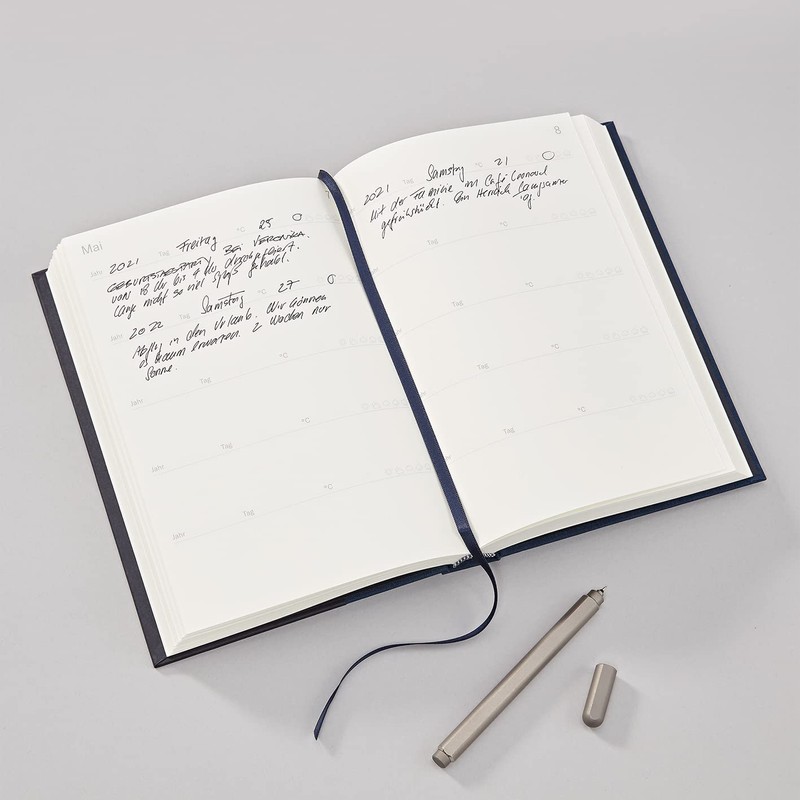 Mai
Jahr 2021 Tag Freitag °C 25
GEBURTSTAGSPARTY BEI VERONIKA.
von 18 Uhr bis 4 Uhr durchgefeiert.
Lange nicht so viel Spaß gehabt.
Jahr 2022 Tag Samstag °C 27
Abflug in den Urlaub. Wir können
es kaum erwarten. 2 Wochen nur
Sonne.
Jahr Tag °C
Jahr Tag °C
Jahr Tag °C
8
2021 Samstag °C 21
Mit der Familie im Café Leonard
gefrühstückt. Langsamer
Tag °C
Tag °C
Tag °C
Tag °C